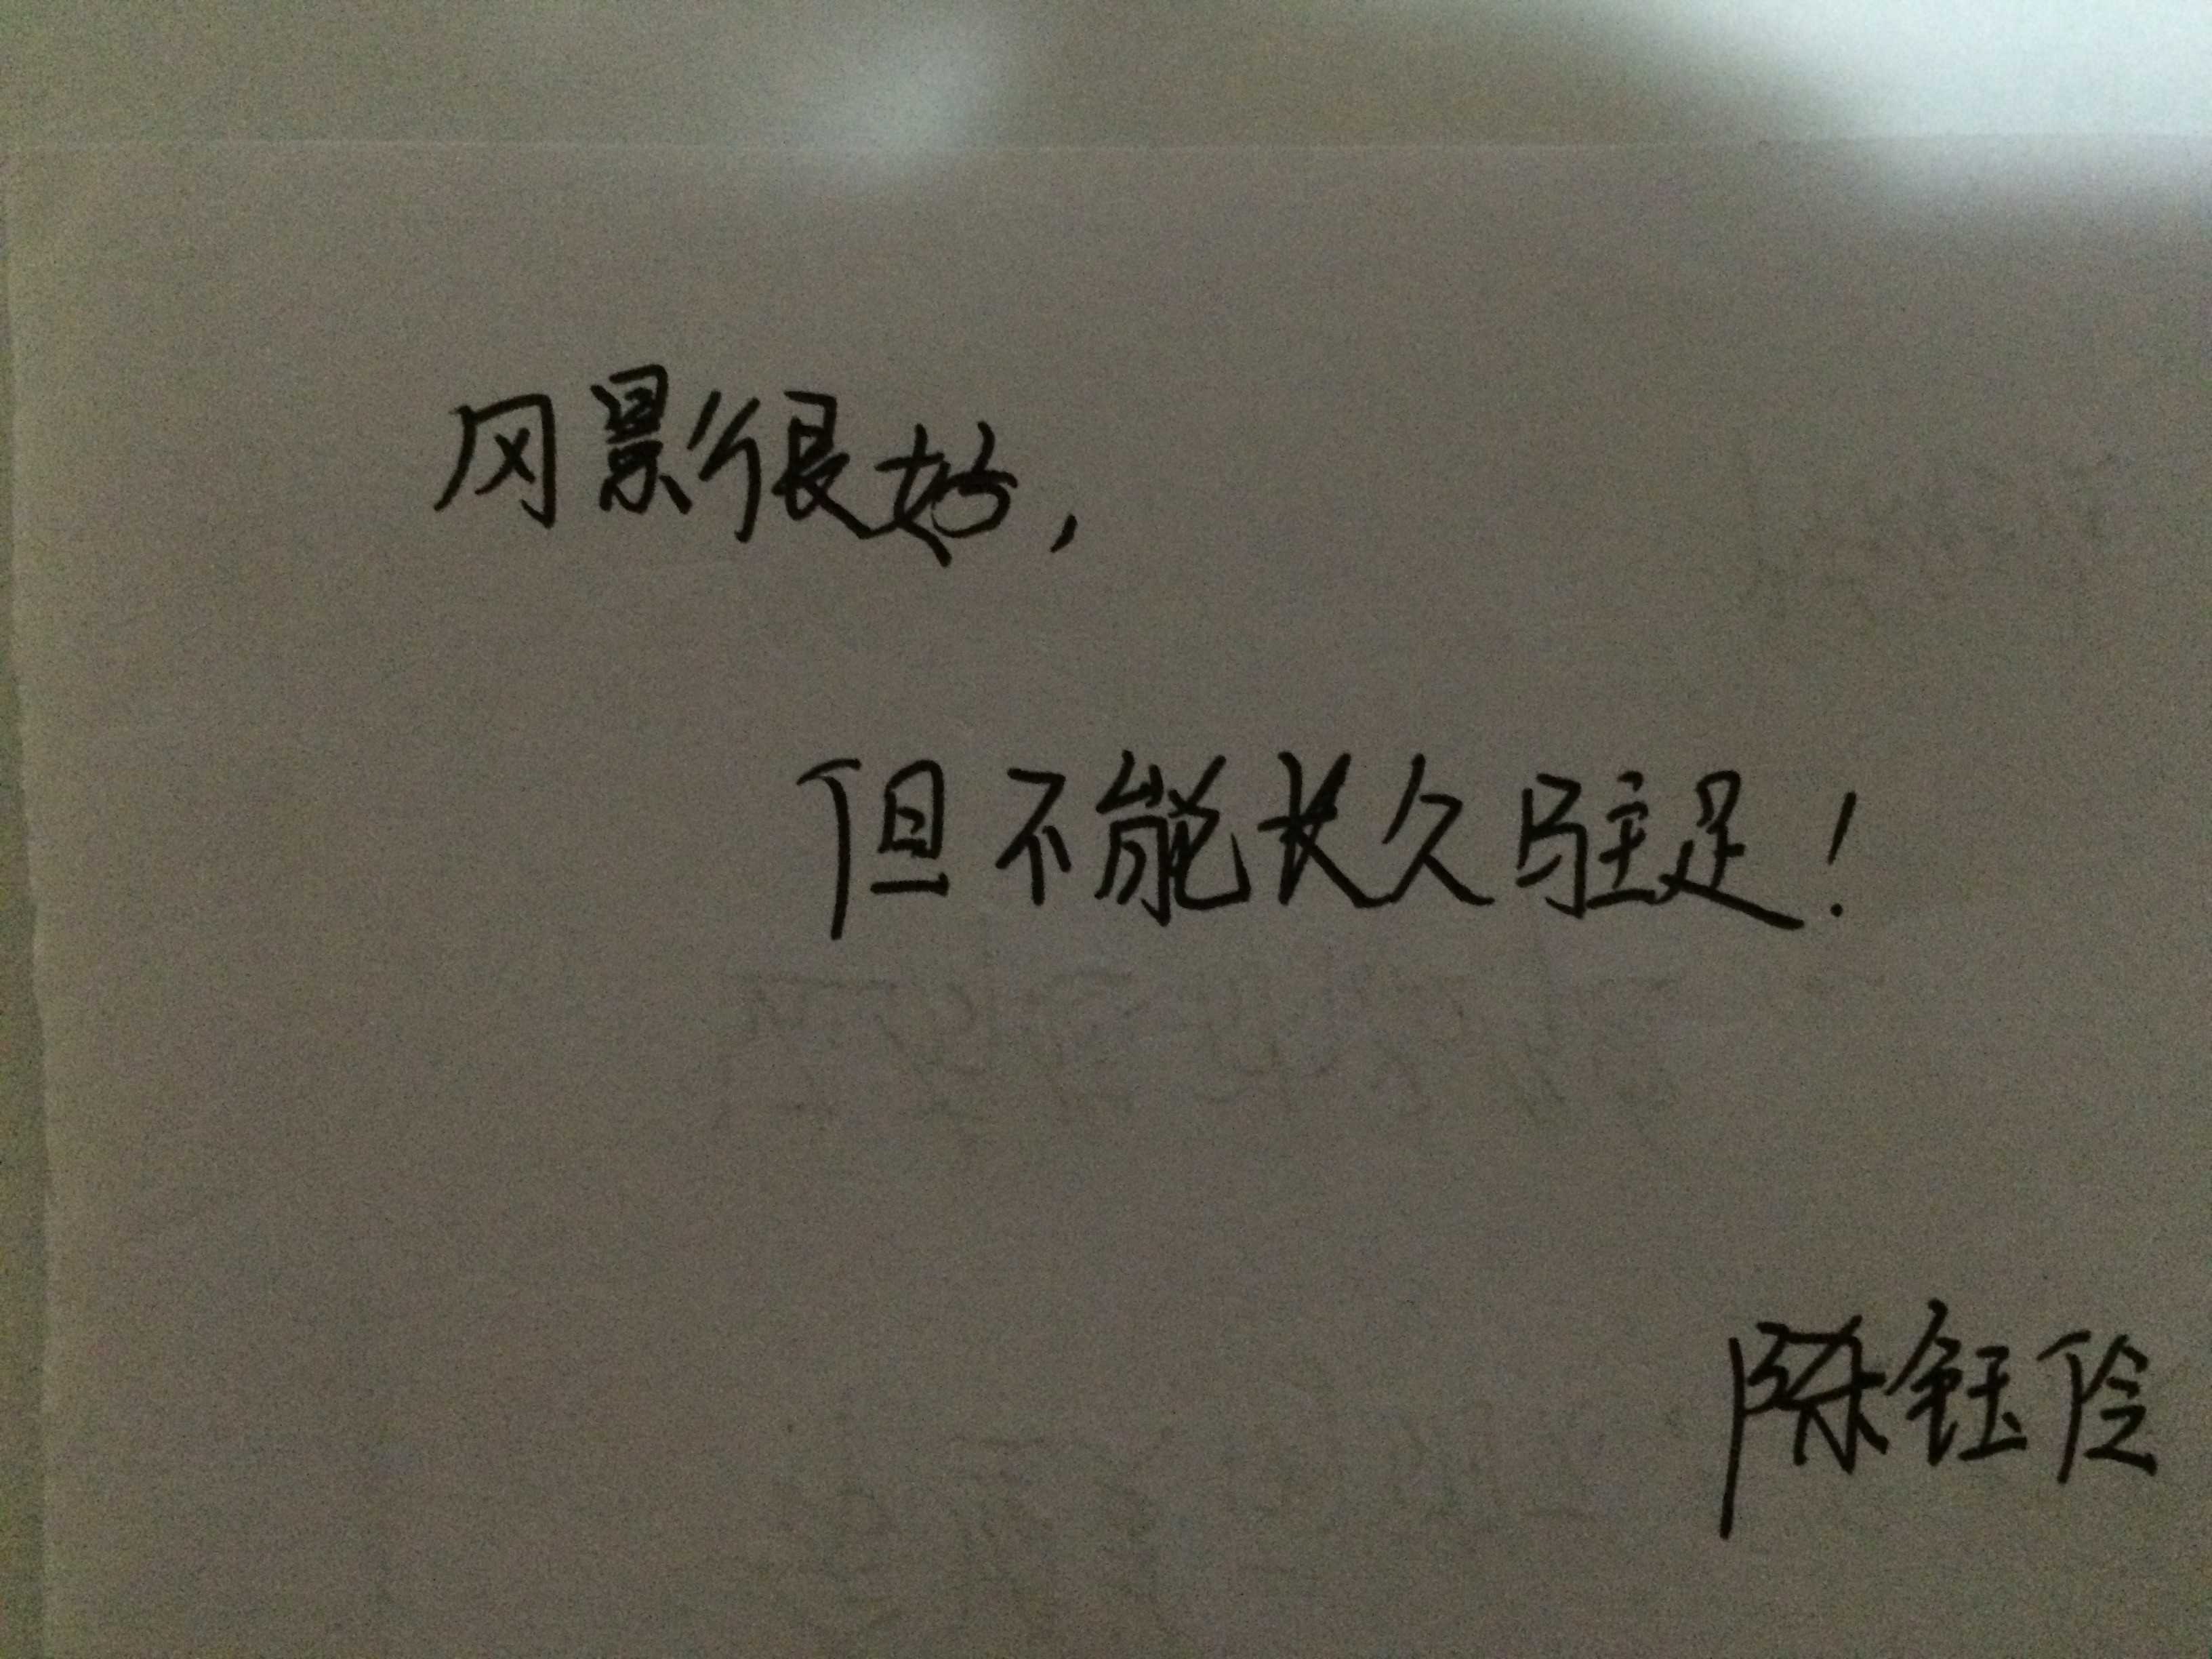 风景很好，
但不能长久驻足！
陈钰伶